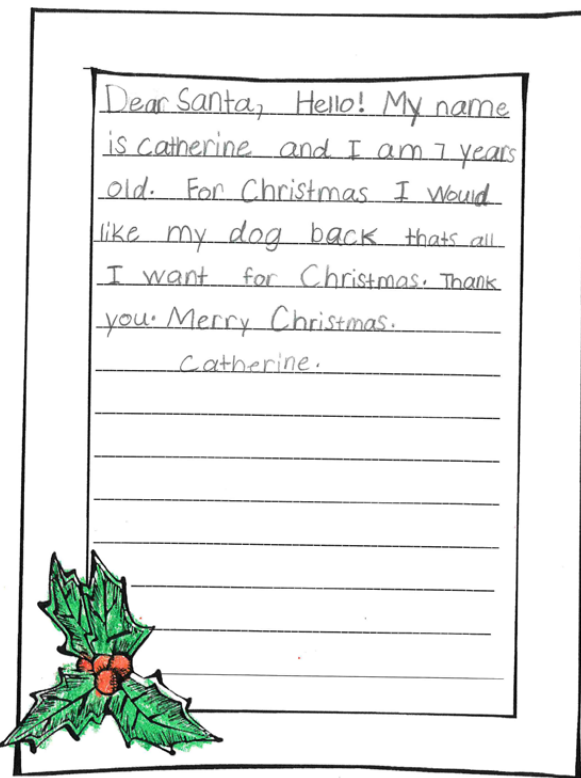 Dear Santa, Hello! My name
is Catherine and I am 7 years
old. For Christmas I would
like my dog back thats all
I want for Christmas. Thank
you. Merry Christmas.
Catherine.